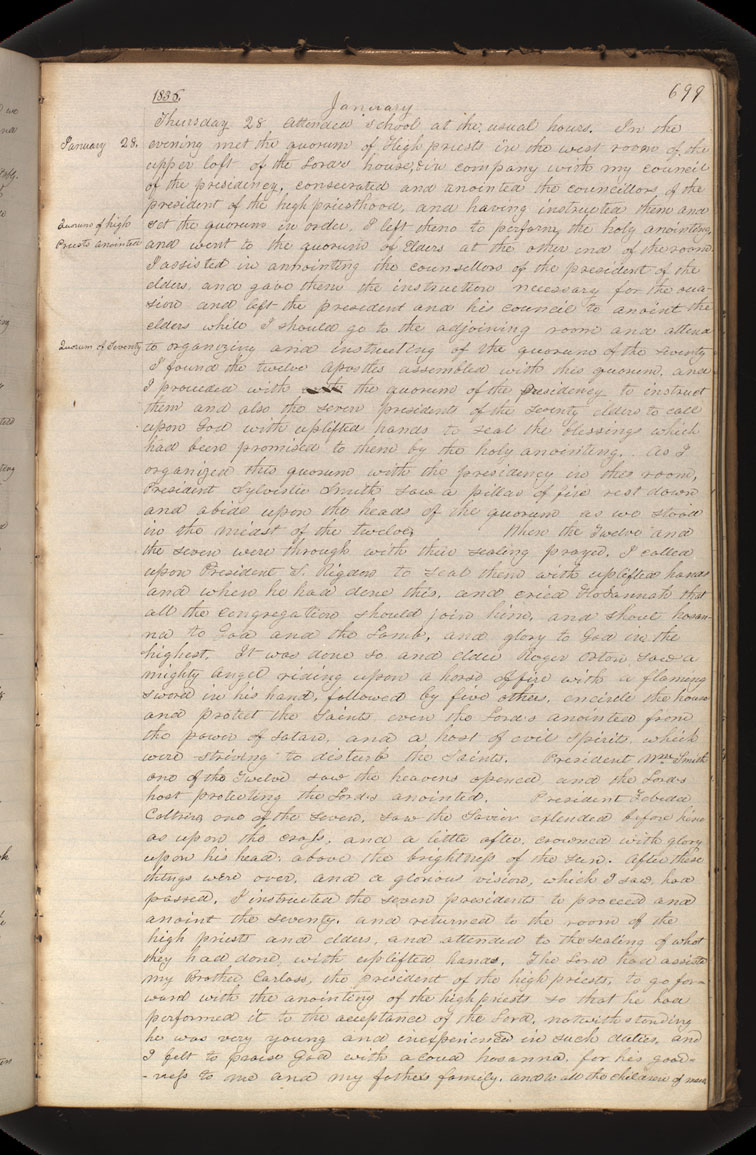 1836.
699
January
Thursday 28 attended school at the usual hours. In the
January 28.
evening met the quorum of High priests in the west room of the
upper loft of the Lord's house, & in company with my council
of the presidency, consecrated and anointed the councillors of the
president of the high priesthood, and having instructed them and
Quorum of high
set the quorum in order, I left them to perform the holy anointing,
Priests anointed
and went to the quorum of Elders at the other end of the room.
I assisted in anointing the counsellors of the president of the
elders and gave them the instruction necessary for the occa-
sion and left the president and his council to anoint the
elders while I should go to the adjoining room and attend
Quorum of Seventy
to organizing and instructing of the quorum of the seventy
I found the twelve apostles assembled with this quorum, and
I proceeded with the quorum of the presidency to instruct
them and also the seven presidents of the seventy elders to call
upon God with uplifted hands to seal the blessings which
had been promised to them by the holy anointing. As I
organized this quorum with the presidency in this room,
President Sylvester Smith saw a pillar of fire rest down
and abide upon the heads of the quorum as we stood
in the midst of the twelve. When the Twelve and
the seven were through with their sealing prayer, I called
upon President S. Rigdon to seal them with uplifted hands
and when he had done this, and cried Hosannah that
all the congregation should join him, and shout hosan-
na to God and the Lamb, and glory to God in the
highest. It was done so and elder Roger Orton saw a
mighty Angel riding upon a horse of fire with a flaming
sword in his hand, followed by five others, encircle the house
and protect the Saints, even the Lord's anointed from
the power of satan, and a host of evil spirits, which
were striving to disturb the Saints. President Wm Smith
one of the Twelve saw the heavens opened and the Lord's
host protecting the Lord's anointed. President Zebedee
Coltrin, one of the seven, saw the Savior extended before him
as upon the cross, and a little after, crowned with glory
upon his head, above the brightness of the sun. After these
things were over, and a glorious vision, which I saw, had
passed, I instructed the seven presidents to proceed and
anoint the seventy, and returned to the room of the
high priests and elders, and attended to the sealing of what
they had done, with uplifted hands. The Lord had assisted
my Brother Carloss, the president of the high priests, to go for-
ward with the anointing of the high priests so that he had
performed it to the acceptance of the Lord, notwithstanding
he was very young and inexperienced in such duties, and
I felt to praise God with a loud hosanna, for his good-
-ness to me and my fathers family, and to all the children of men